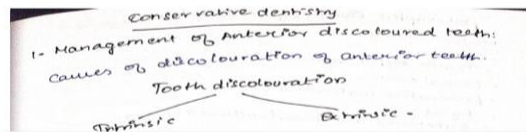 Conservative dentistry
1- Management of Anterior discoloured teeth:
Causes of discolouration of anterior teeth.
Tooth discolouration
Intrinsic Extrinsic -